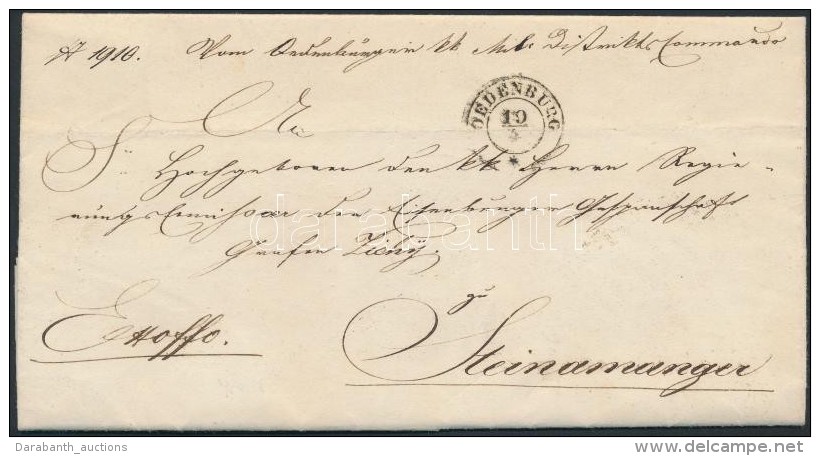 № 1910. Vom Oedenburger kk Mil: Distrikts Commando
OEDENBURG
19
An
Sr Hochgeboren den kk Herrn Regie-
rungs Comissaer der Eisenburger Gespanschaft
Grafen Zichy.
zu
Ex offo.
Steinamanger
darabanth
Darabanth_auctions
www.delcampe.net